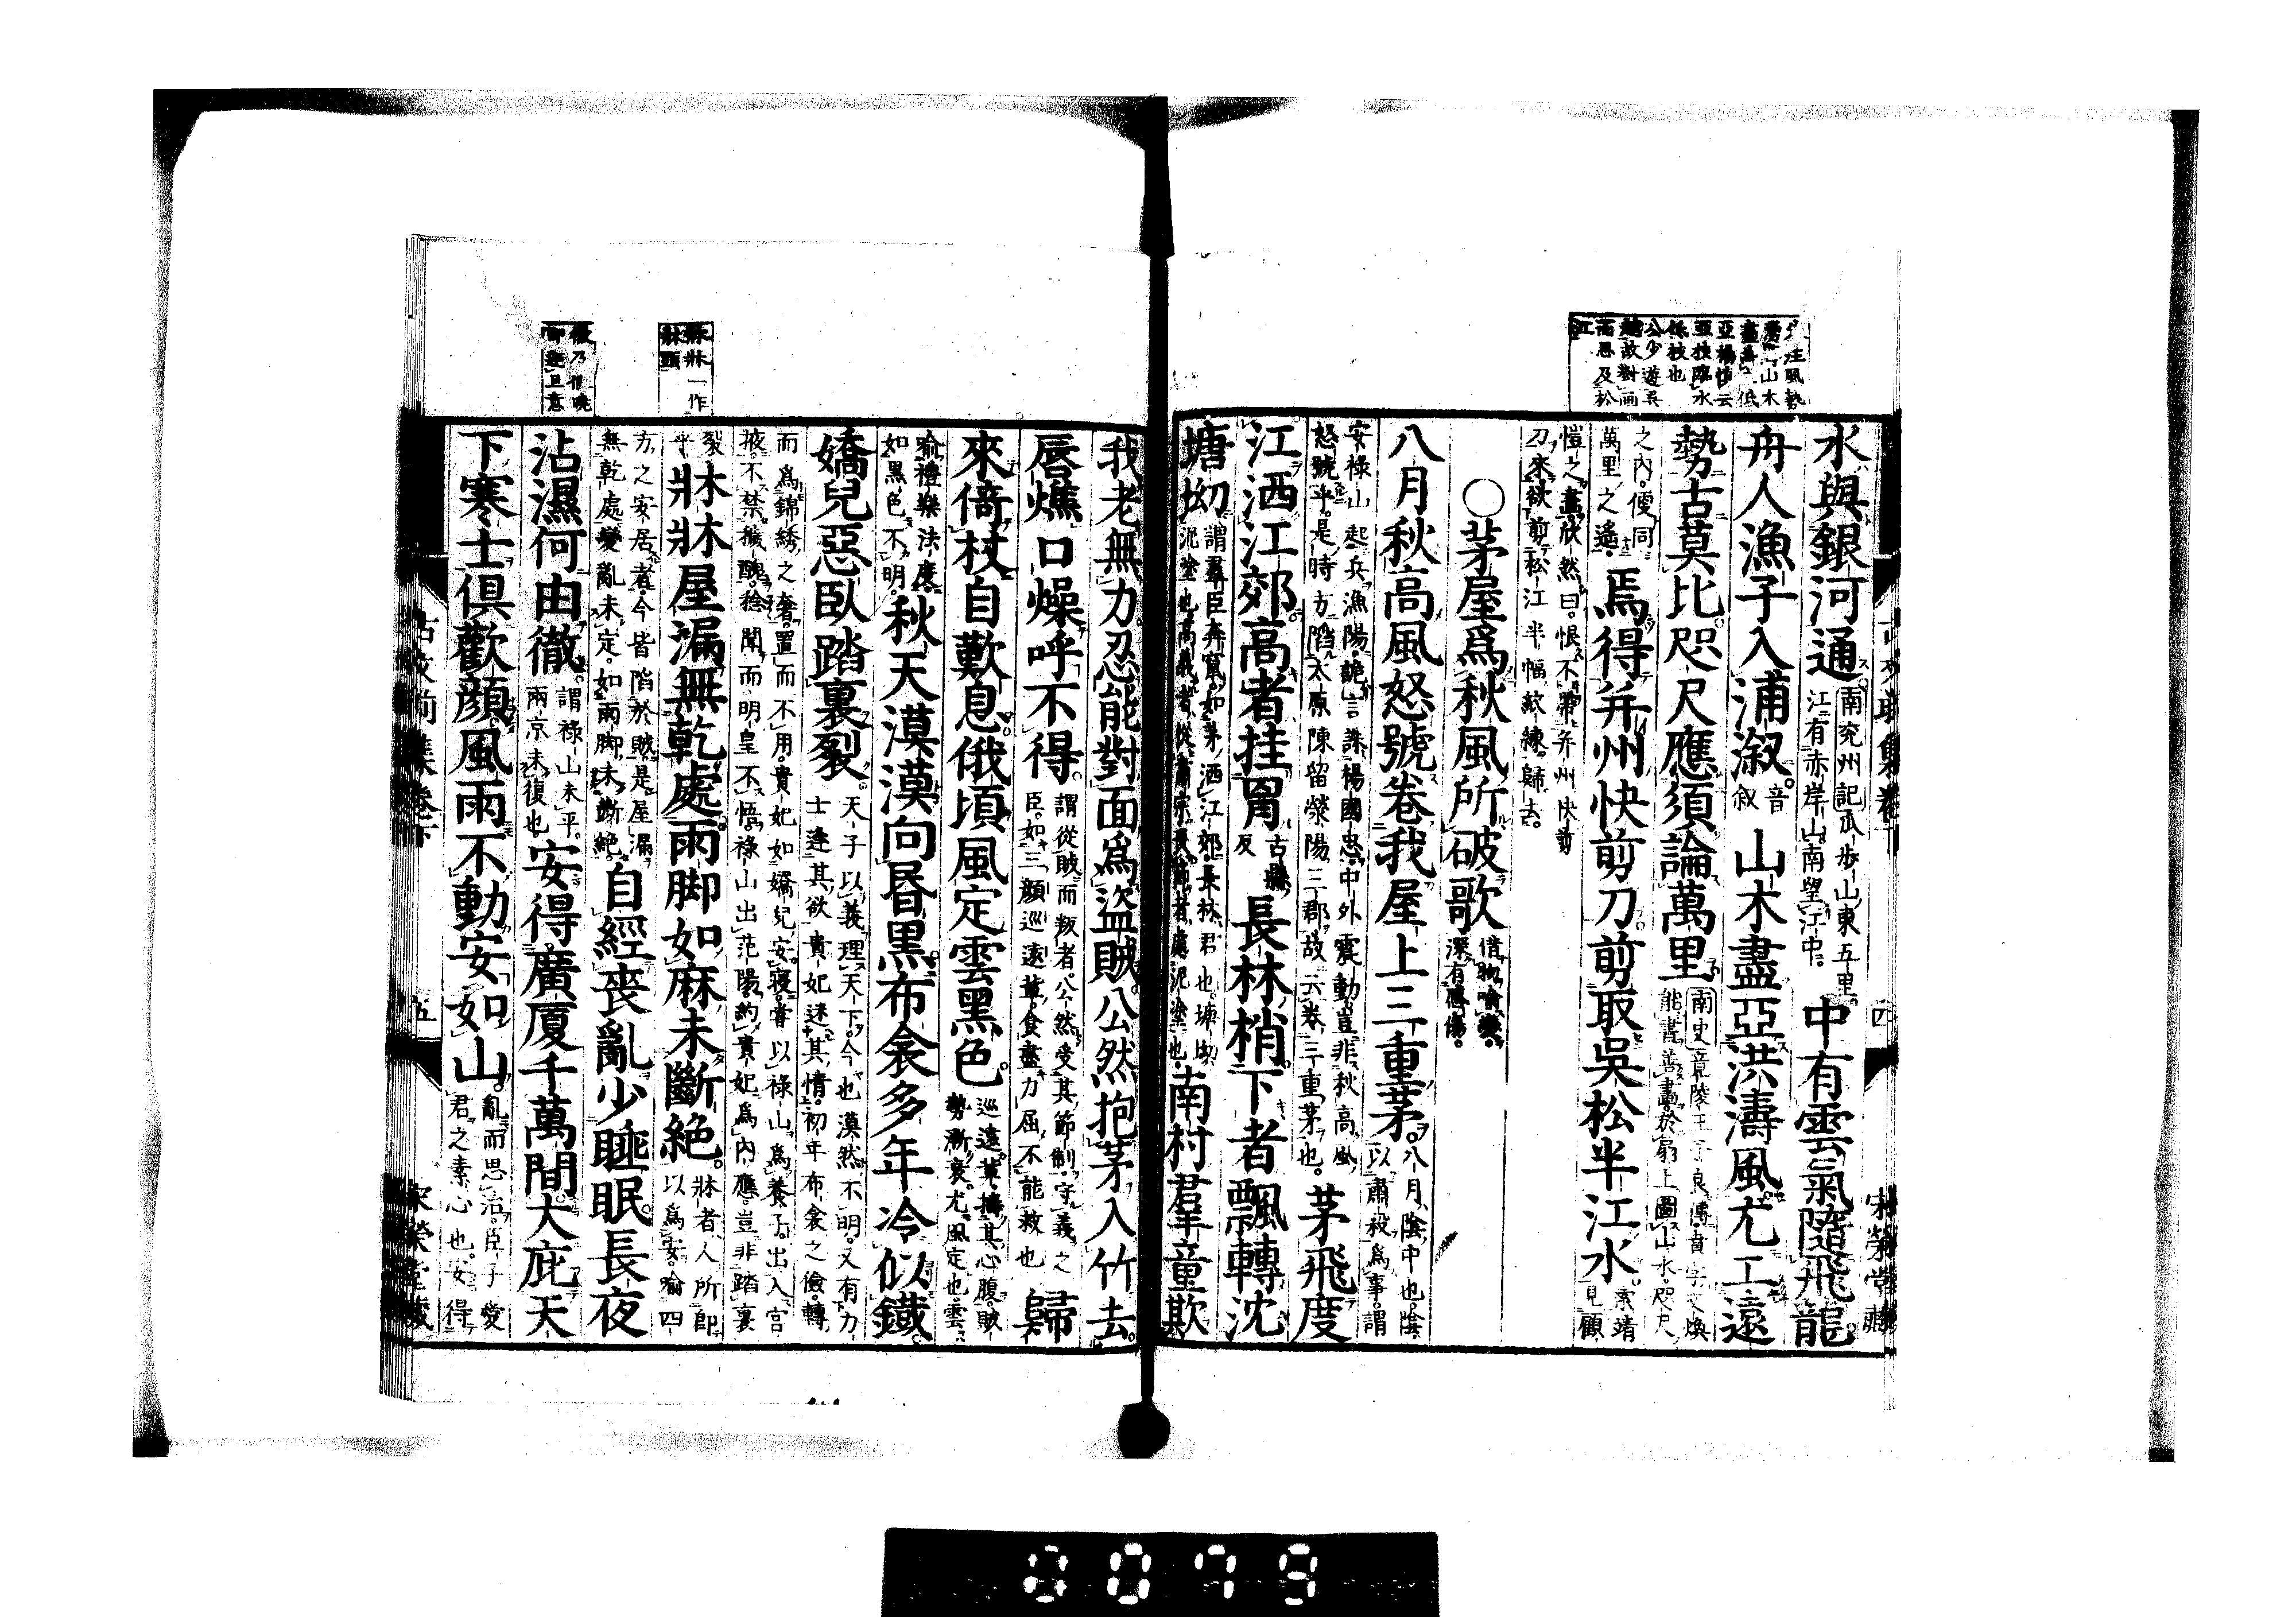 注風勢
山木
低
亞楊愼云
亞枝臨水
低枝也
公少遊吳
越故對画
而思及松
江
水與銀河通南兖州記瓜步山東五里。江有赤岸山南望江中。中有雲氣隨飛龍
舟人漁子入浦溆。音叙山木盡亞洪濤風尤工遠
勢古莫比咫尺應須論萬里南史竟陵王子良傳賁字文煥能書善畫於扇上圖山水。咫尺
之內。便同萬里之遙。焉得并州快剪刀剪取吳松半江水索靖見顧
愷之畫欣然曰。恨不帶并州快剪刀來欲剪松江半幅紋練歸去。
○茅屋爲秋風所破歌借物喻變。深有感傷。
八月秋高風怒號卷我屋上三重茅。八月陰中也。陰以肅殺爲事。謂
安祿山起兵漁陽。詭言誅楊國忠。中外震動。豈非秋高風怒號乎。是時方陷太原陳留滎陽三郡。故云卷三重茅也。茅飛度
江洒江郊。高者挂罥古縣反長林梢。下者飄轉沈
塘坳謂羣臣奔竄。如茅洒江郊。長林君也。塘坳泥塗也。處泥塗也南村羣童欺
古文前集卷下
四
宋榮堂藏
牀牀一作
牀頭
徹乃徹曉
即達旦意
我老無力忍能對面爲盜賊。公然抱茅入竹去。
唇燋口燥呼不得。謂從賊而叛者。公然受其節制。守義之臣。如三顏巡遠輩。食盡力屈。不能救也歸
來倚杖自歎息俄頃風定雲黑色。巡遠輩。擣其心腹。賊勢漸衰。尤風定也。雲
喻禮樂法度。如黑色不明。秋天漠漠向昏黑。布衾多年冷似鐵
嬌兒惡臥踏裏裂天子以義理天下。今也漠然不明。又有力士逢其欲貴妃迷其情。初年布衾之儉。轉
而爲錦綉之奢。置而不用。貴妃如嬌兒安寢。嘗以祿山爲養子。出入宮掖。不禁。穢醜稔聞。而明皇不悟。祿山出范陽。約貴妃爲內應。豈非踏裏
裂乎牀牀屋漏無乾處。雨脚如麻未斷絕。牀者人所卽以爲安。喻四
方之安居者。今皆陷於賊。是屋漏無乾處。變亂未定。如雨脚未斷絕。自經喪亂少睡眠。長夜
沾濕何由徹。謂祿山未平。兩京未復也安得廣厦千萬間。大庇天
下寒士俱歡顏。風雨不動安如山。亂而思治。臣子愛君之素心也。安得
古文前集卷下
五
宋榮堂藏
0079